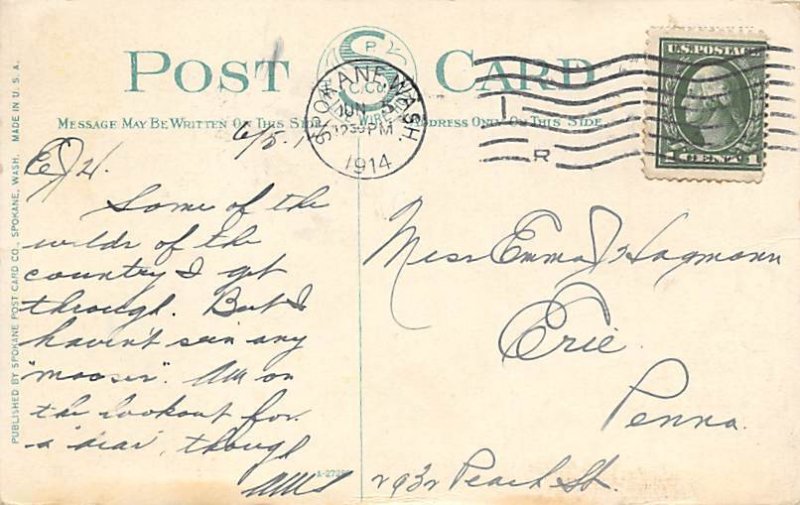 POST CARD
S
P
C. CO.
WIRE
MESSAGE MAY BE WRITTEN ON THIS SIDE.
ADDRESS ONLY ON THIS SIDE.
SPOKANE WASH.
JUN 5
1230PM
1914
R
U.S. POSTAGE
1 CENT 1
PUBLISHED BY SPOKANE POST CARD CO., SPOKANE, WASH. MADE IN U. S. A.
6/5-1
EJH.
Some of the
wilds of the
country I get
through. But I
haven't seen any
"mooses". Am on
the lookout for
a 'dear' though
AWS
Miss Emma J Hagmann
Erie
Penna.
2932 Peach St.